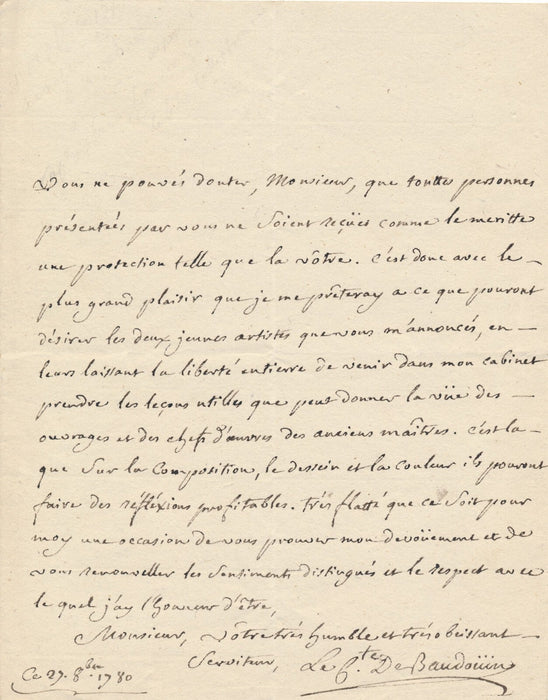 Vous ne pouvés douter, Monsieur, que toutte personnes
présenteés par vous ne Soient reçües comme le meritte
une protection telle que la vôtre. C'est donc avec le –
plus grand plaisir que je me prêteray a ce que pouront
désirer les deux jeunes artistes que vous m'annoncés, en –
leurs laissant la liberté entierre de venir dans mon cabinet
prendre les leçons utilles que peut donner la vüe des –
ouvrages et des chefs d'œuvres des anciens maîtres. C'est la –
que Sur la Composition, le dessein et la Couleur ils pouront
faire des réfléxions profitables. très flatté que ce Soit pour
moy une occasion de vous prouver mon devoüement et de
vous renouveller les Sentiments distingués et le respect avec
le quel j'ay l'honneur d'être,
Monsieur, Vôtre très humble et très obeissant –
Serviteur, Le C.te De Baudoüin
Ce 27. 8.bre 1780